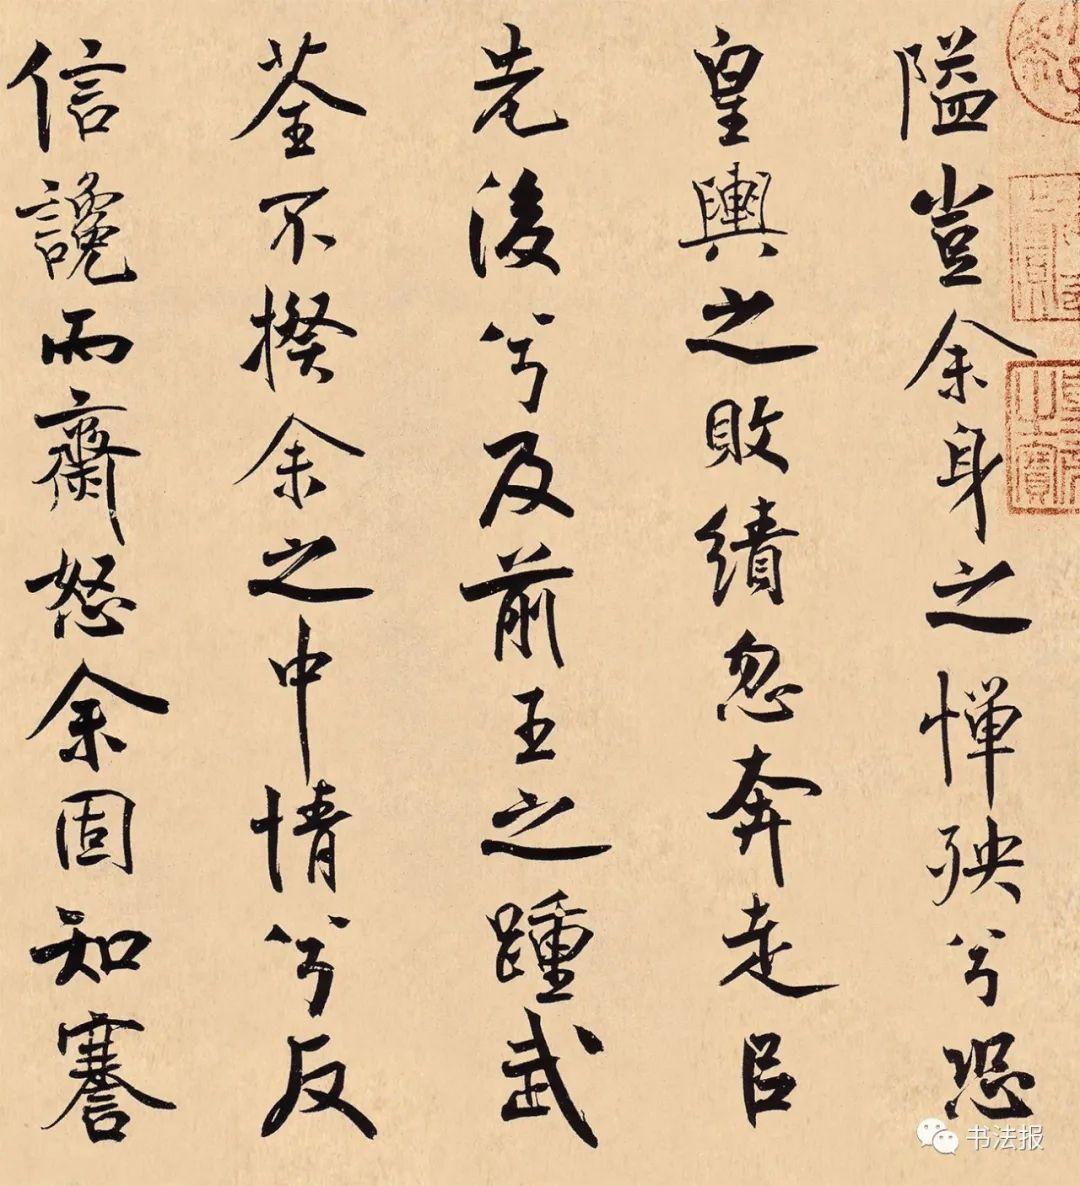 隘豈余身之憚殃兮恐
皇輿之敗績忽奔走㠯
先後兮及前王之踵武
荃不揆余之中情兮反
信讒而齌怒余固知謇
书法报